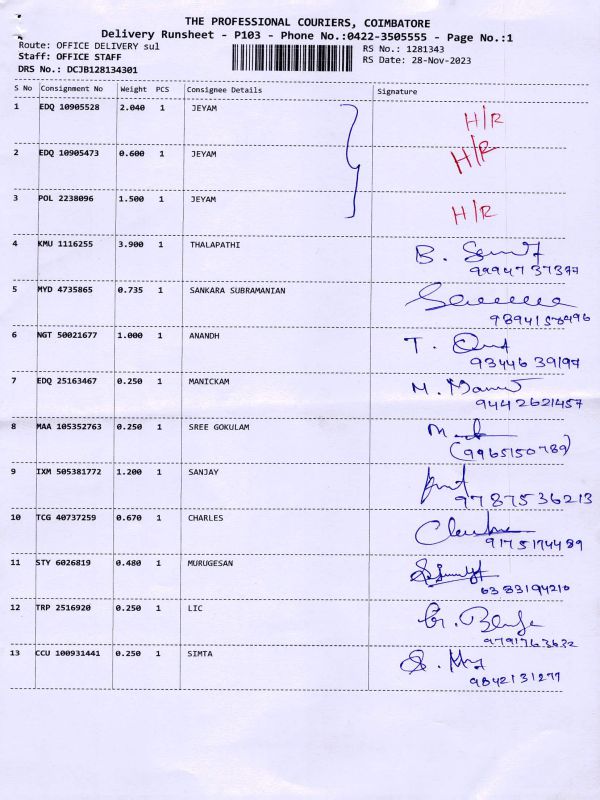 THE PROFESSIONAL COURIERS, COIMBATORE
Delivery Runsheet - P103 - Phone No.:0422-3505555 - Page No.:1
Route: OFFICE DELIVERY sul
RS No.: 1281343
Staff: OFFICE STAFF
RS Date: 28-Nov-2023
DRS No.: DCJB128134301
S No Consignment No Weight PCS Consignee Details Signature
1 EDQ 10905528 2.040 1 JEYAM H/R
2 EDQ 10905473 0.600 1 JEYAM H/R
3 POL 2238096 1.500 1 JEYAM H/R
4 KMU 1116255 3.900 1 THALAPATHI B.
9994737397
5 MYD 4735865 0.735 1 SANKARA SUBRAMANIAN
9894158496
6 NGT 50021677 1.000 1 ANANDH T.
9344639197
7 EDQ 25163467 0.250 1 MANICKAM M.
9442621457
8 MAA 105352763 0.250 1 SREE GOKULAM
(9965150789)
9 IXM 505381772 1.200 1 SANJAY
9787536213
10 TCG 40737259 0.670 1 CHARLES
9175174489
11 STY 6026819 0.480 1 MURUGESAN
6383194210
12 TRP 2516920 0.250 1 LIC
9791763632
13 CCU 100931441 0.250 1 SIMTA
9842131277